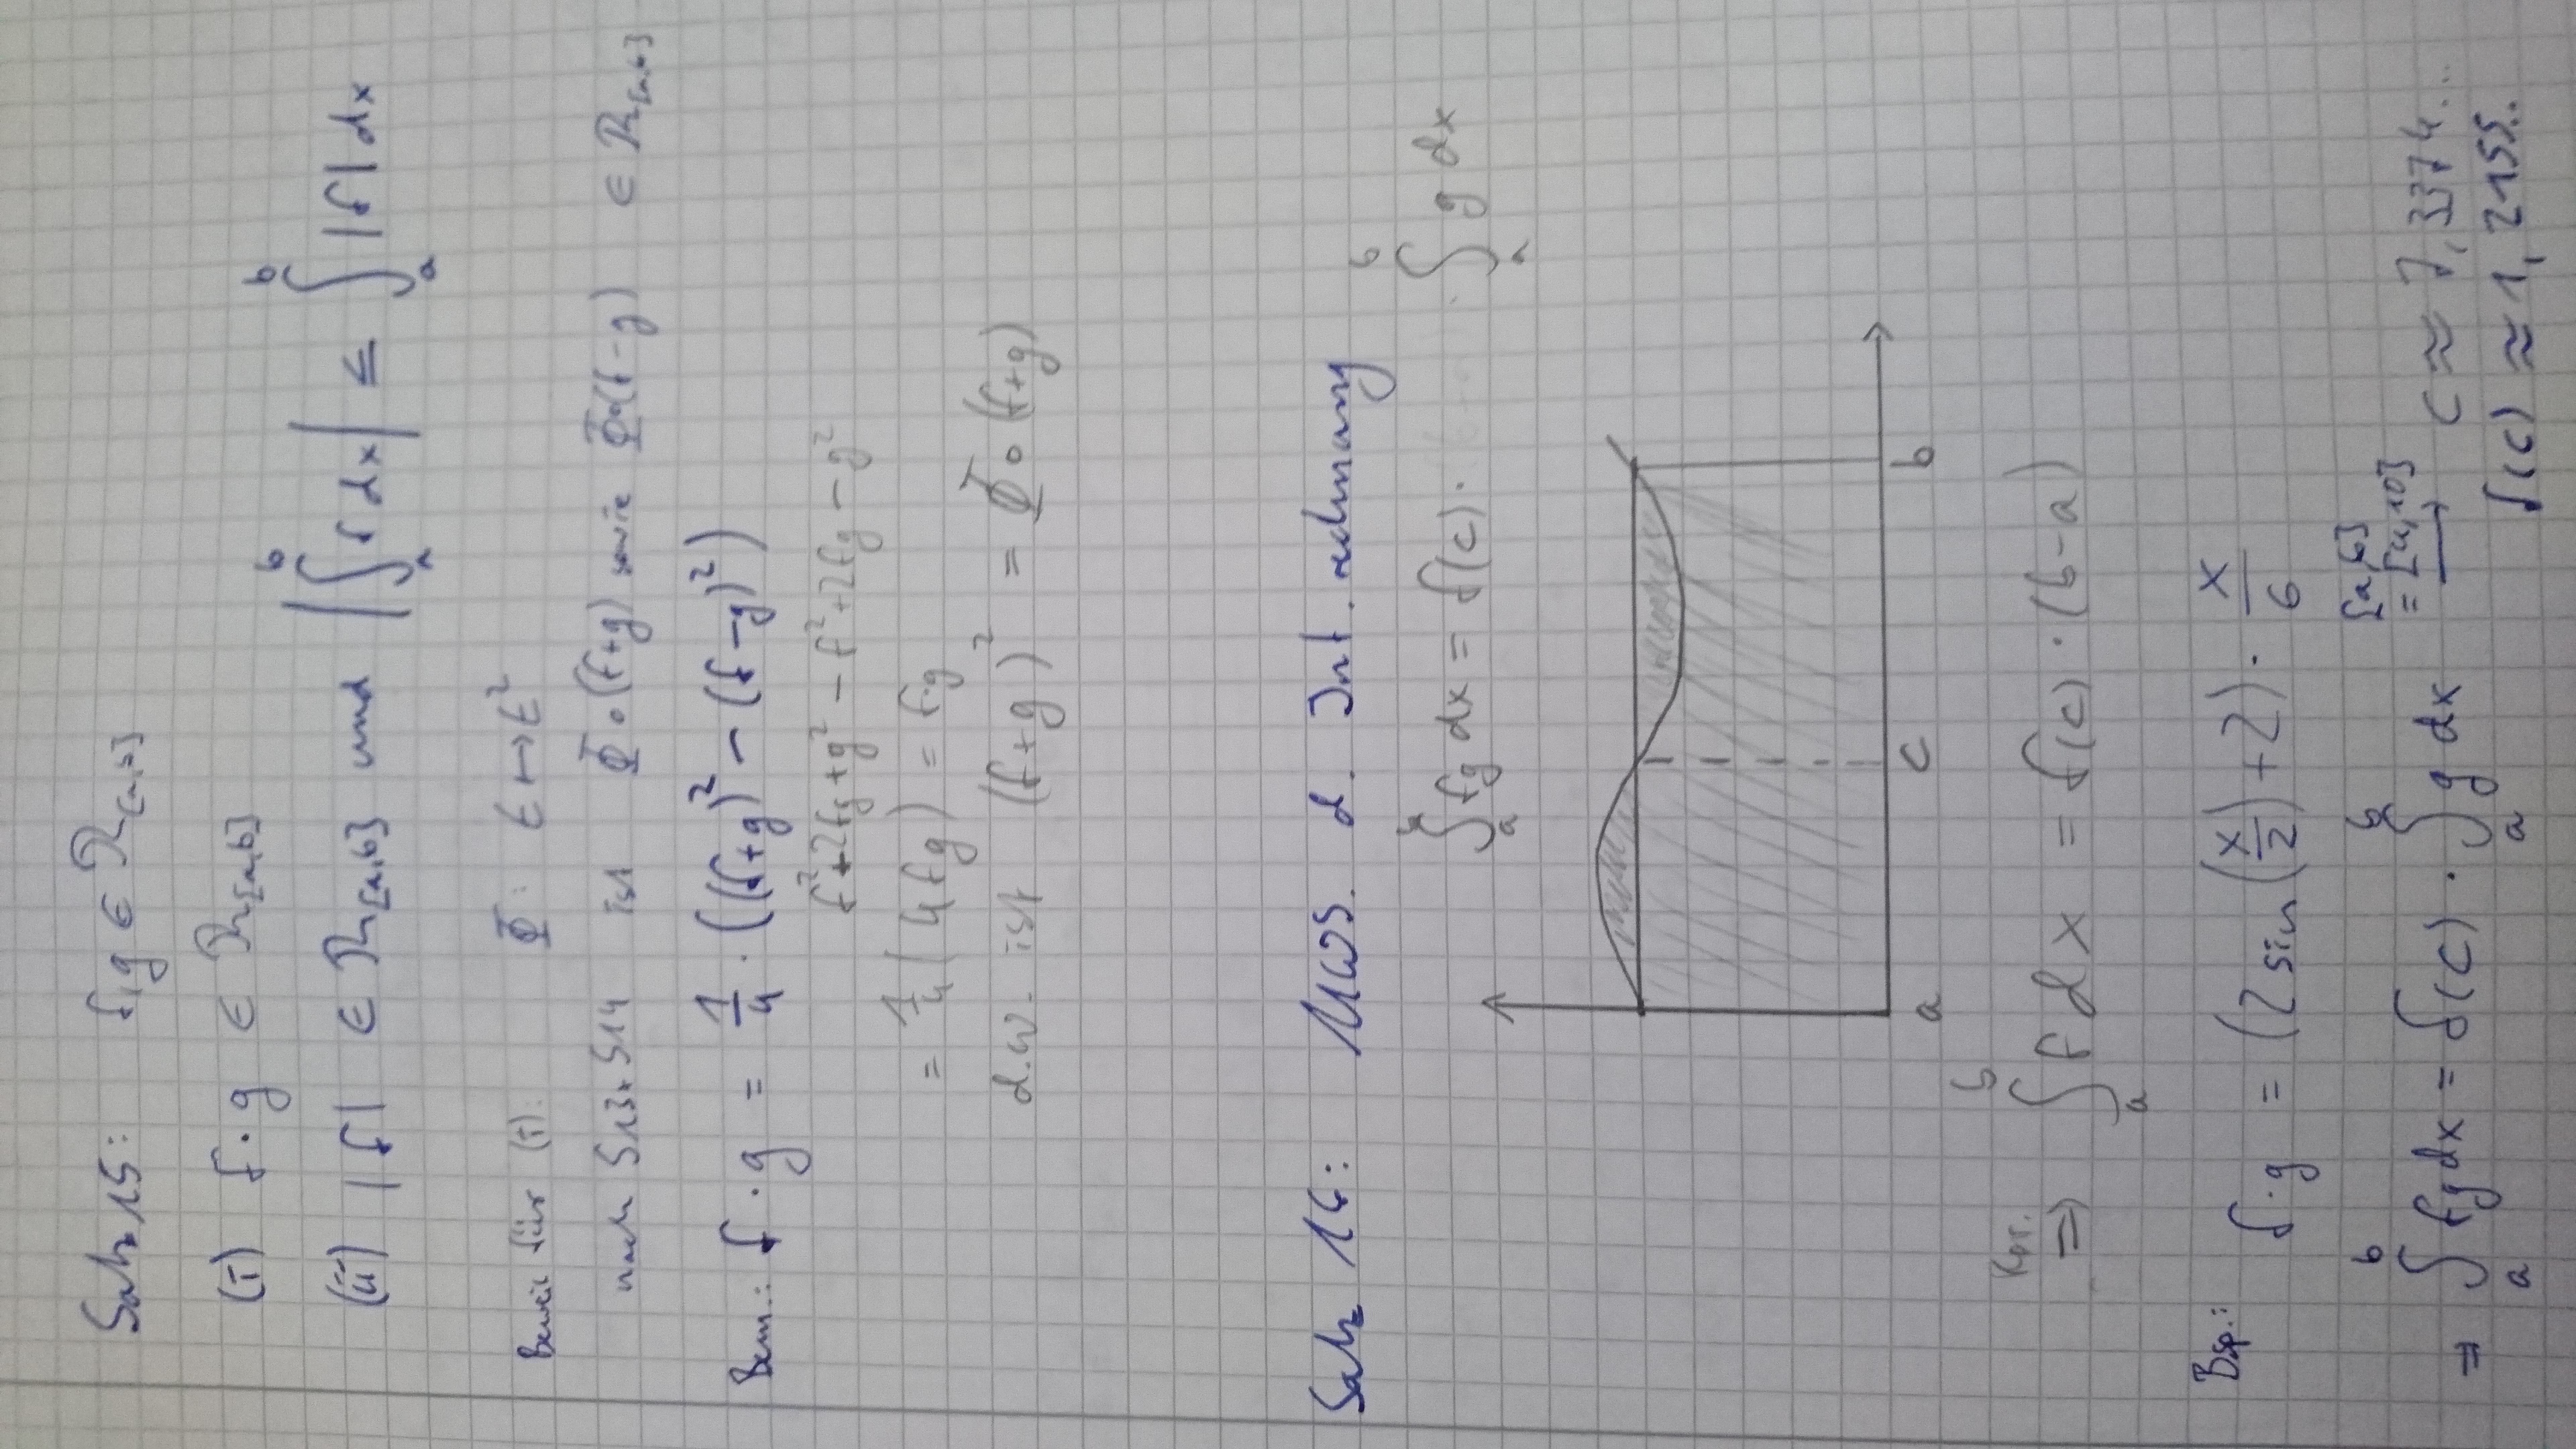 Satz 15: f,g ∈ R[a,b]
(i) f·g ∈ R[a,b]
(ii) |f| ∈ R[a,b] und |∫_a^b f dx| ≤ ∫_a^b |f| dx
Beweis für (i): Φ: t ↦ t²
nach S13+S14 ist Φ∘(f+g) sowie Φ∘(f-g) ∈ R[a,b]
Bem.: f·g = 1/4 · ((f+g)² - (f-g)²)
f²+2fg+g² - f²+2fg-g²
= 1/4 (4fg) = f·g
d.w. ist (f+g)² = Φ∘(f+g)
Satz 16: MWS. d. Int.rechnung
∫_a^b fg dx = f(c) · · ∫_a^b g dx
a c b
Kor.
⇒ ∫_a^b f dx = f(c) · (b-a)
Bsp.: f·g = (2 sin(x/2)+2) · x/6
[a,b]
= [4,10]
⇒ ∫_a^b fg dx = f(c) · ∫_a^b g dx → c ≈ 7,3374...
f(c) ≈ 1,2155..